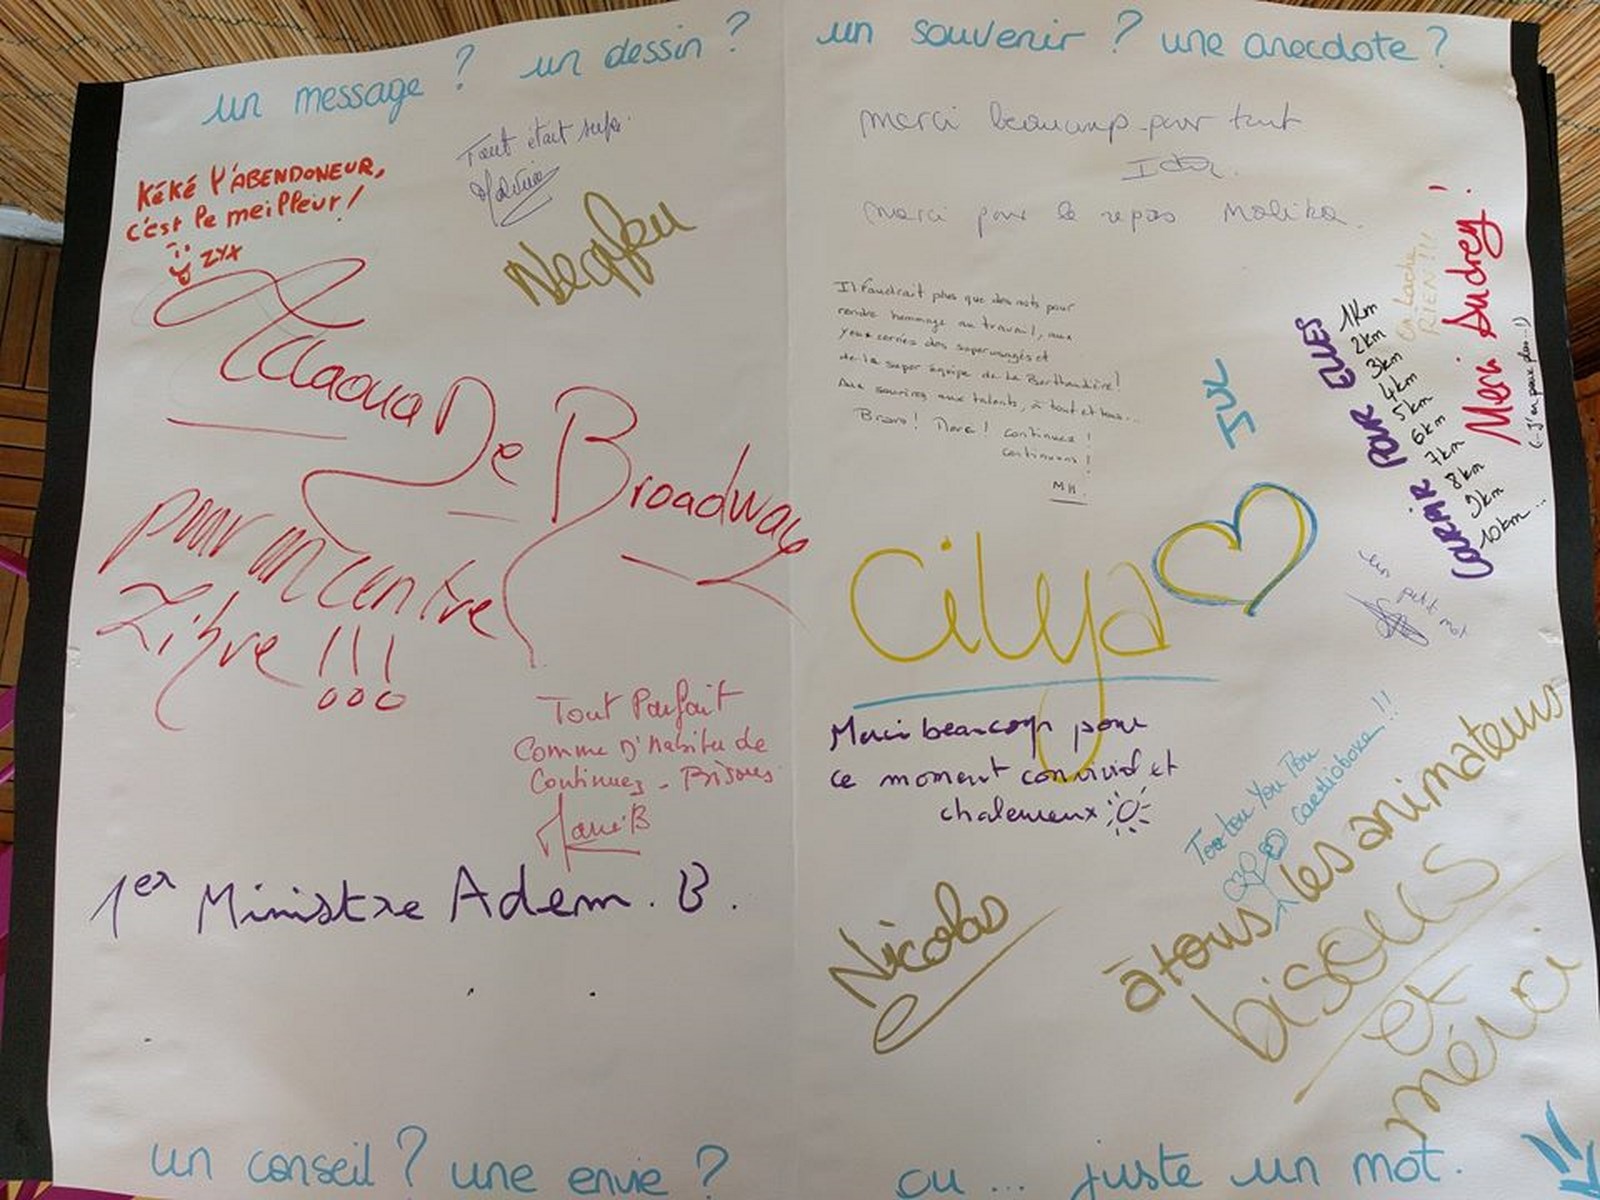 un message ? un dessin ?
Tout était super
KéKé l'ABENDONEUR,
c'est le meilleur !
ZYX
De Broadway
pour un centre
Libre !!!
Tout Parfait
Comme D'Habitude
Continuez - Bisous
Marie B
1er Ministre Adem . B .
un conseil ? une envie ?
un souvenir ? une anecdote ?
merci beaucoup pour tout
merci pour le repas Malika.
Il faudrait plus que des mots pour
rendre hommage au travail, aux
yeux cernés des superusagés et
de la super équipe de la Berthaudière !
Aux sourires aux talents, à tout et tous...
Bravo ! Merci ! continuez !
continuons !
MH
JUL
COURIR POUR ELLES
1km
2km
3km
4km
5km
6km
7km
8km
9km
10km...
on Lache
RIEN !!!
Merci Audrey !
(...J'en peux plus...!)
un petit
Cilya
Merci beaucoup pour
ce moment convivial et
chaleureux
Nicolas
Tou tou You Tou
cardioboxe !!
à tous les animateurs
bisous
et
mérci
ou ... juste un mot.